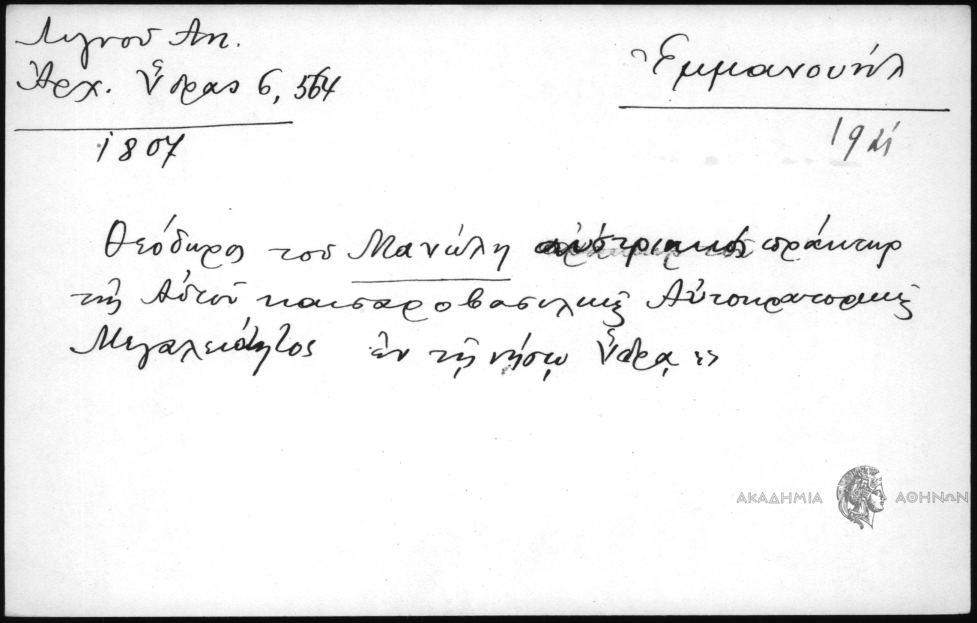 Λιγνοῦ Αν.
Ἀρχ. Ὕδρας 6, 564
1807
Ἐμμανουήλ
19
Θεόδωρος τοῦ Μανώλη αὐστριακὸς πράκτωρ
τῆς Αὐτοῦ καισαροβασιλικῆς Αὐτοκρατορικῆς
Μεγαλειότητος ἐν τῇ νήσῳ Ὕδρᾳ
ΑΚΑΔΗΜΙΑ ΑΘΗΝΩΝ